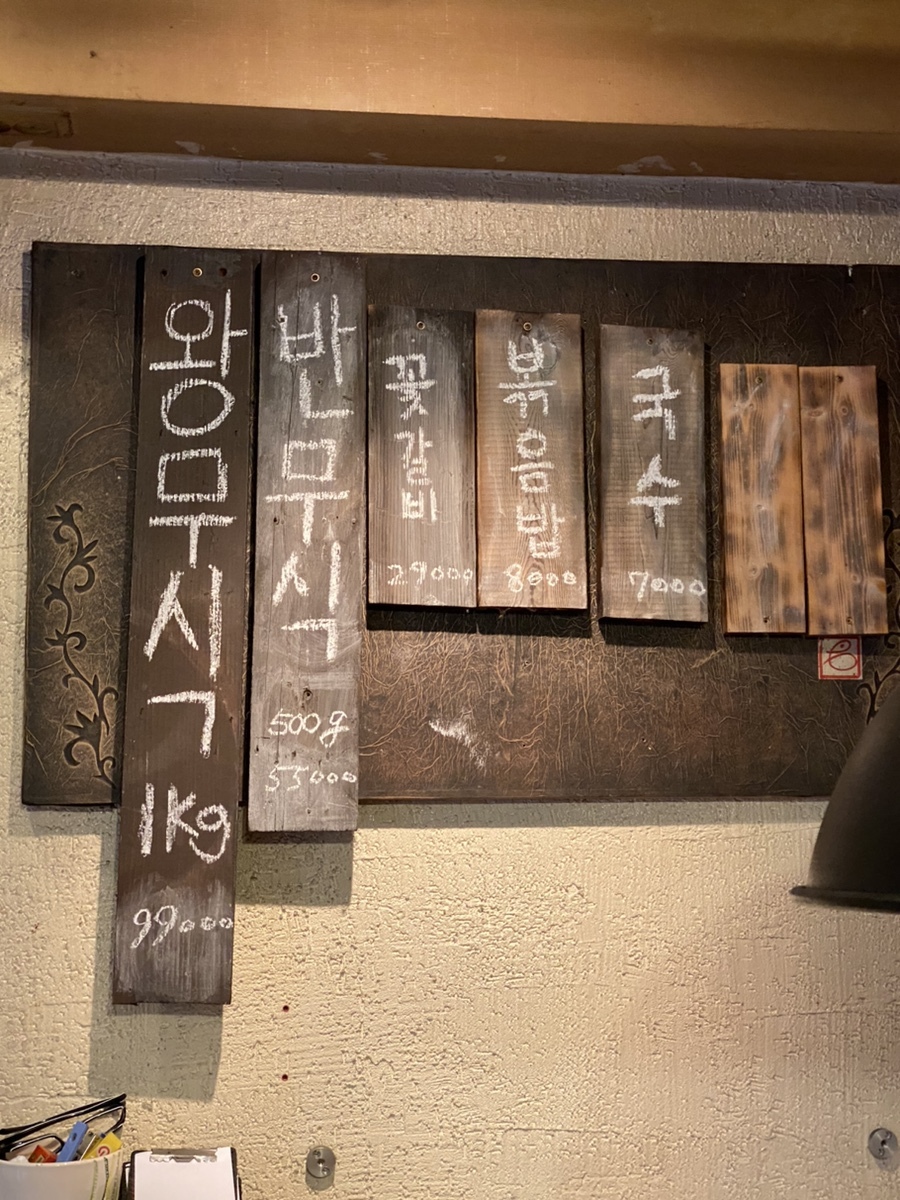 왕무시국
1Kg
99000
반무시국
500g
55000
꽃갈비
29000
볶음밥
8000
국수
7000